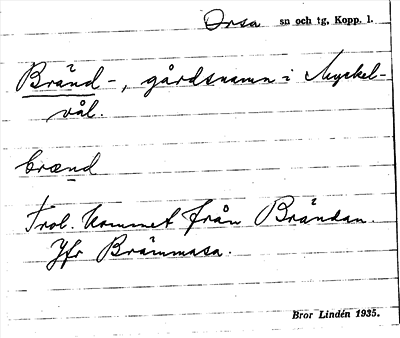 Orsa sn och tg, Kopp. l.
Bränd-, gårdsnamn i Myckel-
vål.
brænd
Trol. kommet från Brändan.
Jfr Brämmasa.
Bror Lindén 1935.